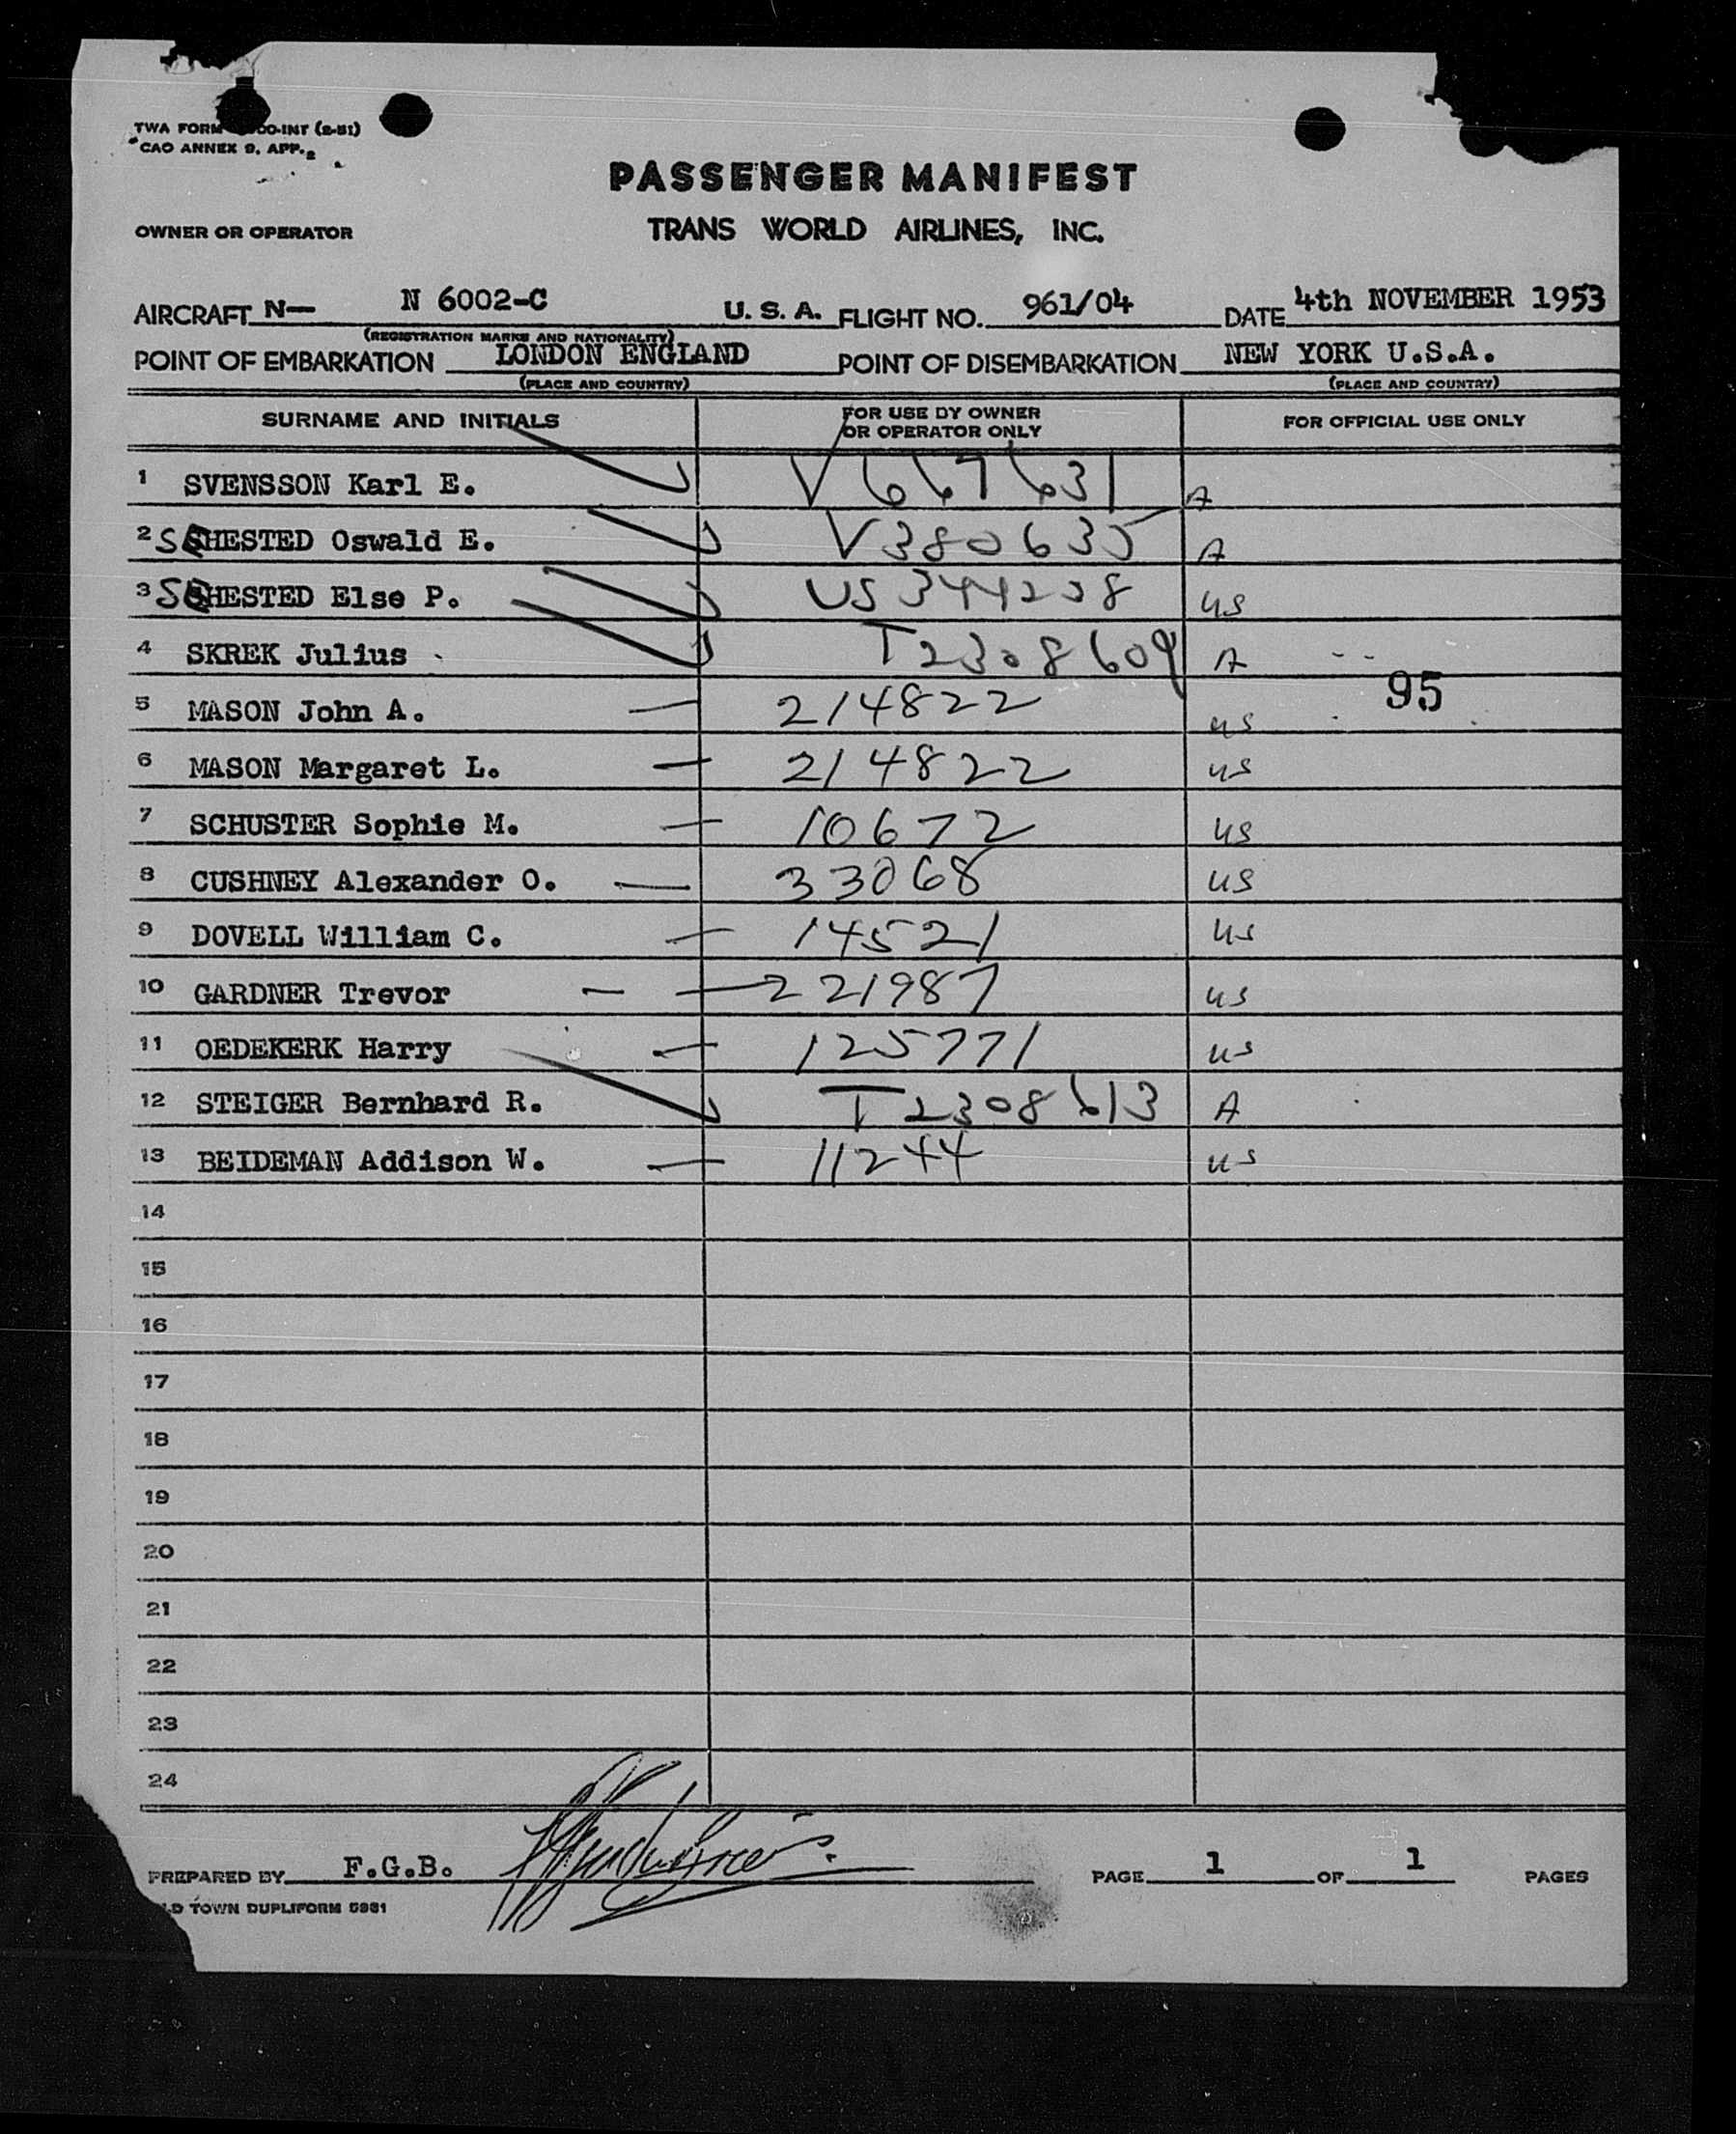 TWA FORM OO-INT (2-51)
CAO ANNEX 9, APP.
PASSENGER MANIFEST
OWNER OR OPERATOR TRANS WORLD AIRLINES, INC.
AIRCRAFT N— N 6002-C U. S. A. FLIGHT NO. 961/04 DATE 4th NOVEMBER 1953
(REGISTRATION MARKS AND NATIONALITY)
POINT OF EMBARKATION LONDON ENGLAND POINT OF DISEMBARKATION NEW YORK U.S.A.
(PLACE AND COUNTRY) (PLACE AND COUNTRY)
SURNAME AND INITIALS FOR USE BY OWNER OR OPERATOR ONLY FOR OFFICIAL USE ONLY
1 SVENSSON Karl E. V 667631 A
2 SEHESTED Oswald E. V380635 A
3 SEHESTED Else P. US 344238 US
4 SKREK Julius T2308609 A
95
5 MASON John A. — 214822 US
6 MASON Margaret L. — 214822 US
7 SCHUSTER Sophie M. — 10672 US
8 CUSHNEY Alexander O. — 33068 US
9 DOVELL William C. — 14521 US
10 GARDNER Trevor — — 221987 US
11 OEDEKERK Harry — 125771 US
12 STEIGER Bernhard R. T2308613 A
13 BEIDEMAN Addison W. — 11244 US
14
15
16
17
18
19
20
21
22
23
24
PREPARED BY F.G.B. PAGE 1 OF 1 PAGES
LD TOWN DUPLIFORM 5981